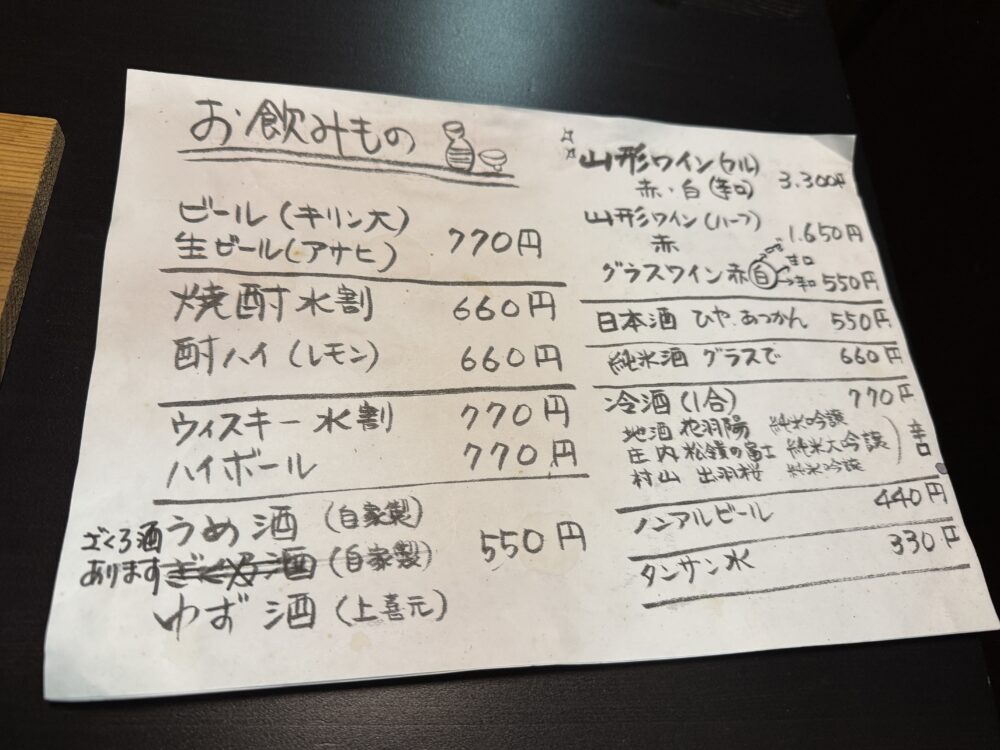 お飲みもの
ビール(キリン大)
生ビール(アサヒ) 770円
焼酎水割 660円
酎ハイ(レモン) 660円
ウィスキー水割 770円
ハイボール 770円
うめ酒(自家製)
ざくろ酒
あります
(自家製) 550円
ゆず酒(上喜元)
山形ワイン(フル)
赤・白(辛口) 3.300円
山形ワイン(ハーフ)
赤 1.650円
グラスワイン赤白 ロゼ 甘口 辛口 550円
日本酒 ひや あつかん 550円
純米酒 グラスで 660円
冷酒(1合) 770円
地酒 羽陽 純米吟醸
庄内 松嶺の富士 純米大吟醸 辛口
村山 出羽桜 純米吟醸
ノンアルビール 440円
タンサン水 330円